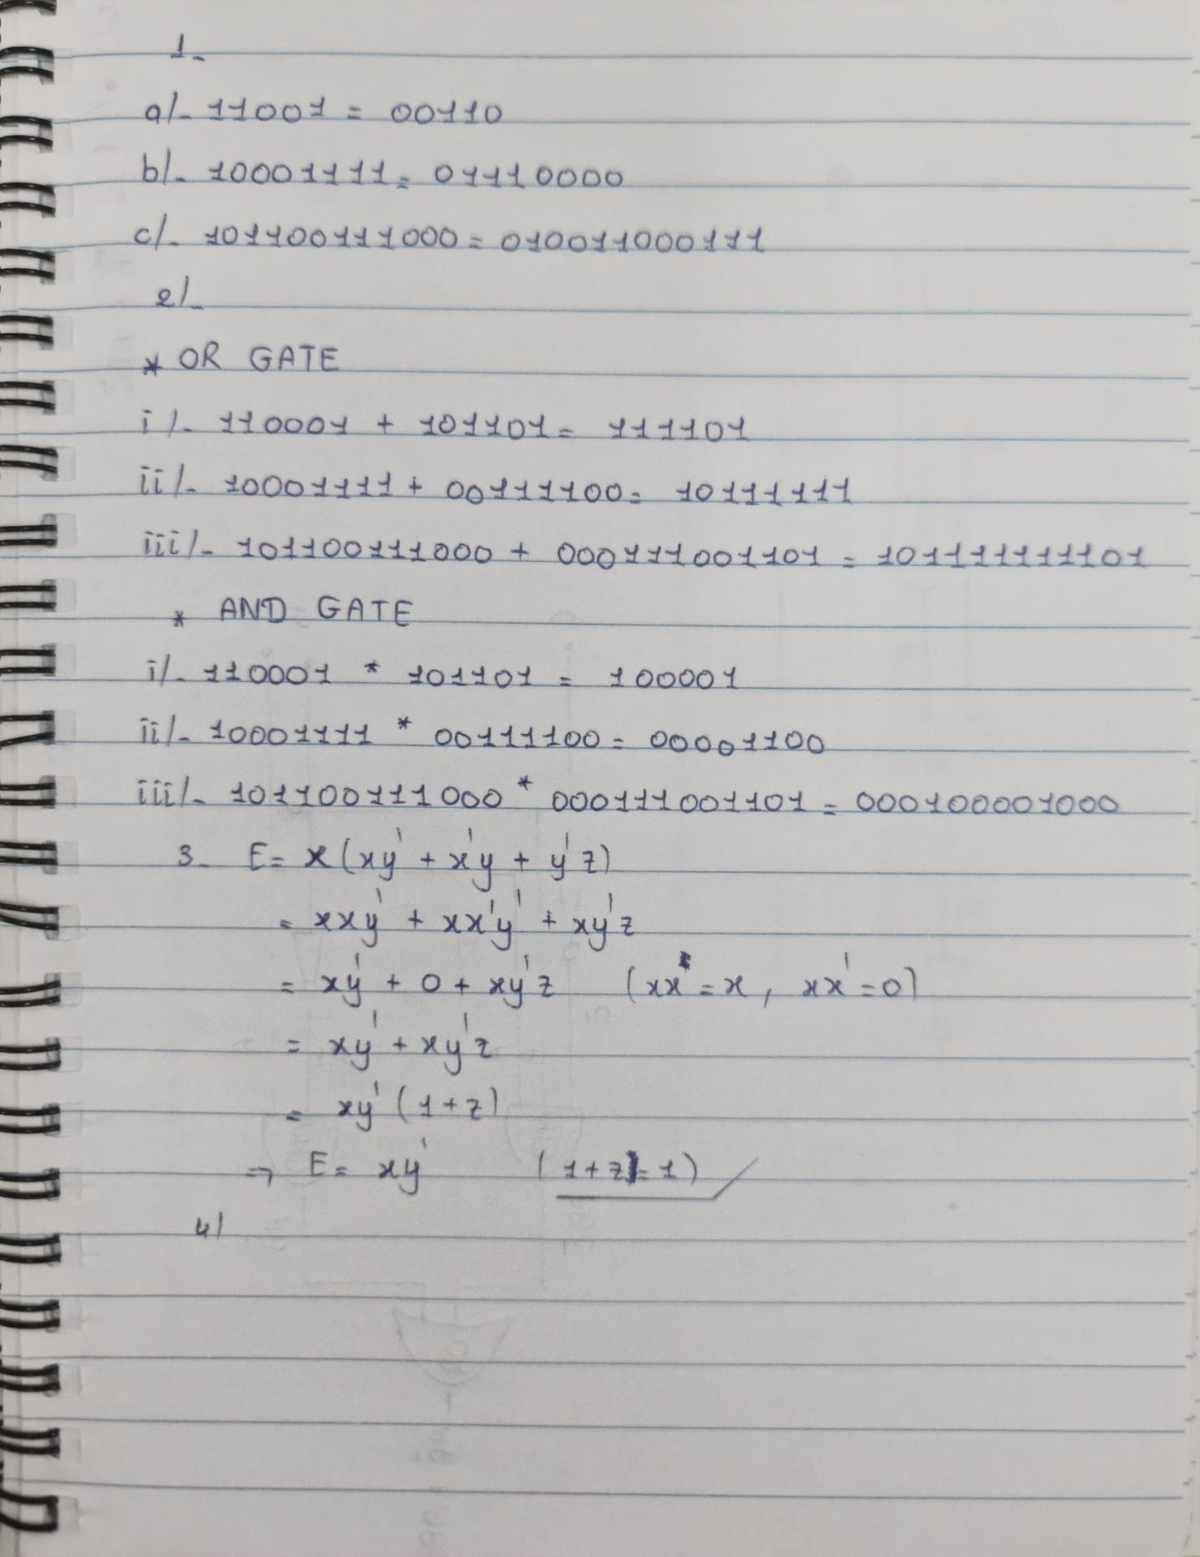 1-
a/- 11001 = 00110
b/- 10001111 = 01110000
c/- 101100111000 = 010011000111
2/-
* OR GATE
i/- 110001 + 101101 = 111101
ii/- 10001111 + 00111100 = 10111111
iii/- 101100111000 + 000111001101 = 101111111101
* AND GATE
i/- 110001 * 101101 = 100001
ii/- 10001111 * 00111100 = 00001100
iii/- 101100111000 * 000111001101 = 000100001000
3- E = x(xy' + x'y + y'z)
= xxy' + xx'y' + xy'z
= xy' + 0 + xy'z (xx = x, xx' = 0)
= xy' + xy'z
= xy'(1+z)
⇒ E = xy' (1+z = 1)
4/